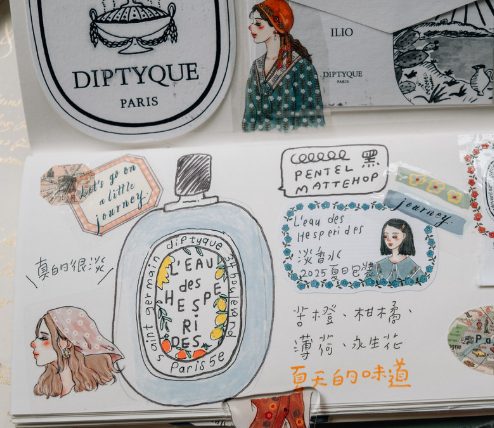 DIPTYQUE
PARIS
ILIO
DIPTYQUE
PARIS
Let's go on
a little
journey.
真的很淡
diptyque
saint germain
boulevard
paris 5e
L'EAU
des
HESPE
RI
DES
PENTEL 黑
MATTEHOP
journey
L'eau des
Hesperides
淡香水
2025夏日包裝
苦橙、柑橘、
薄荷、永生花
夏天的味道